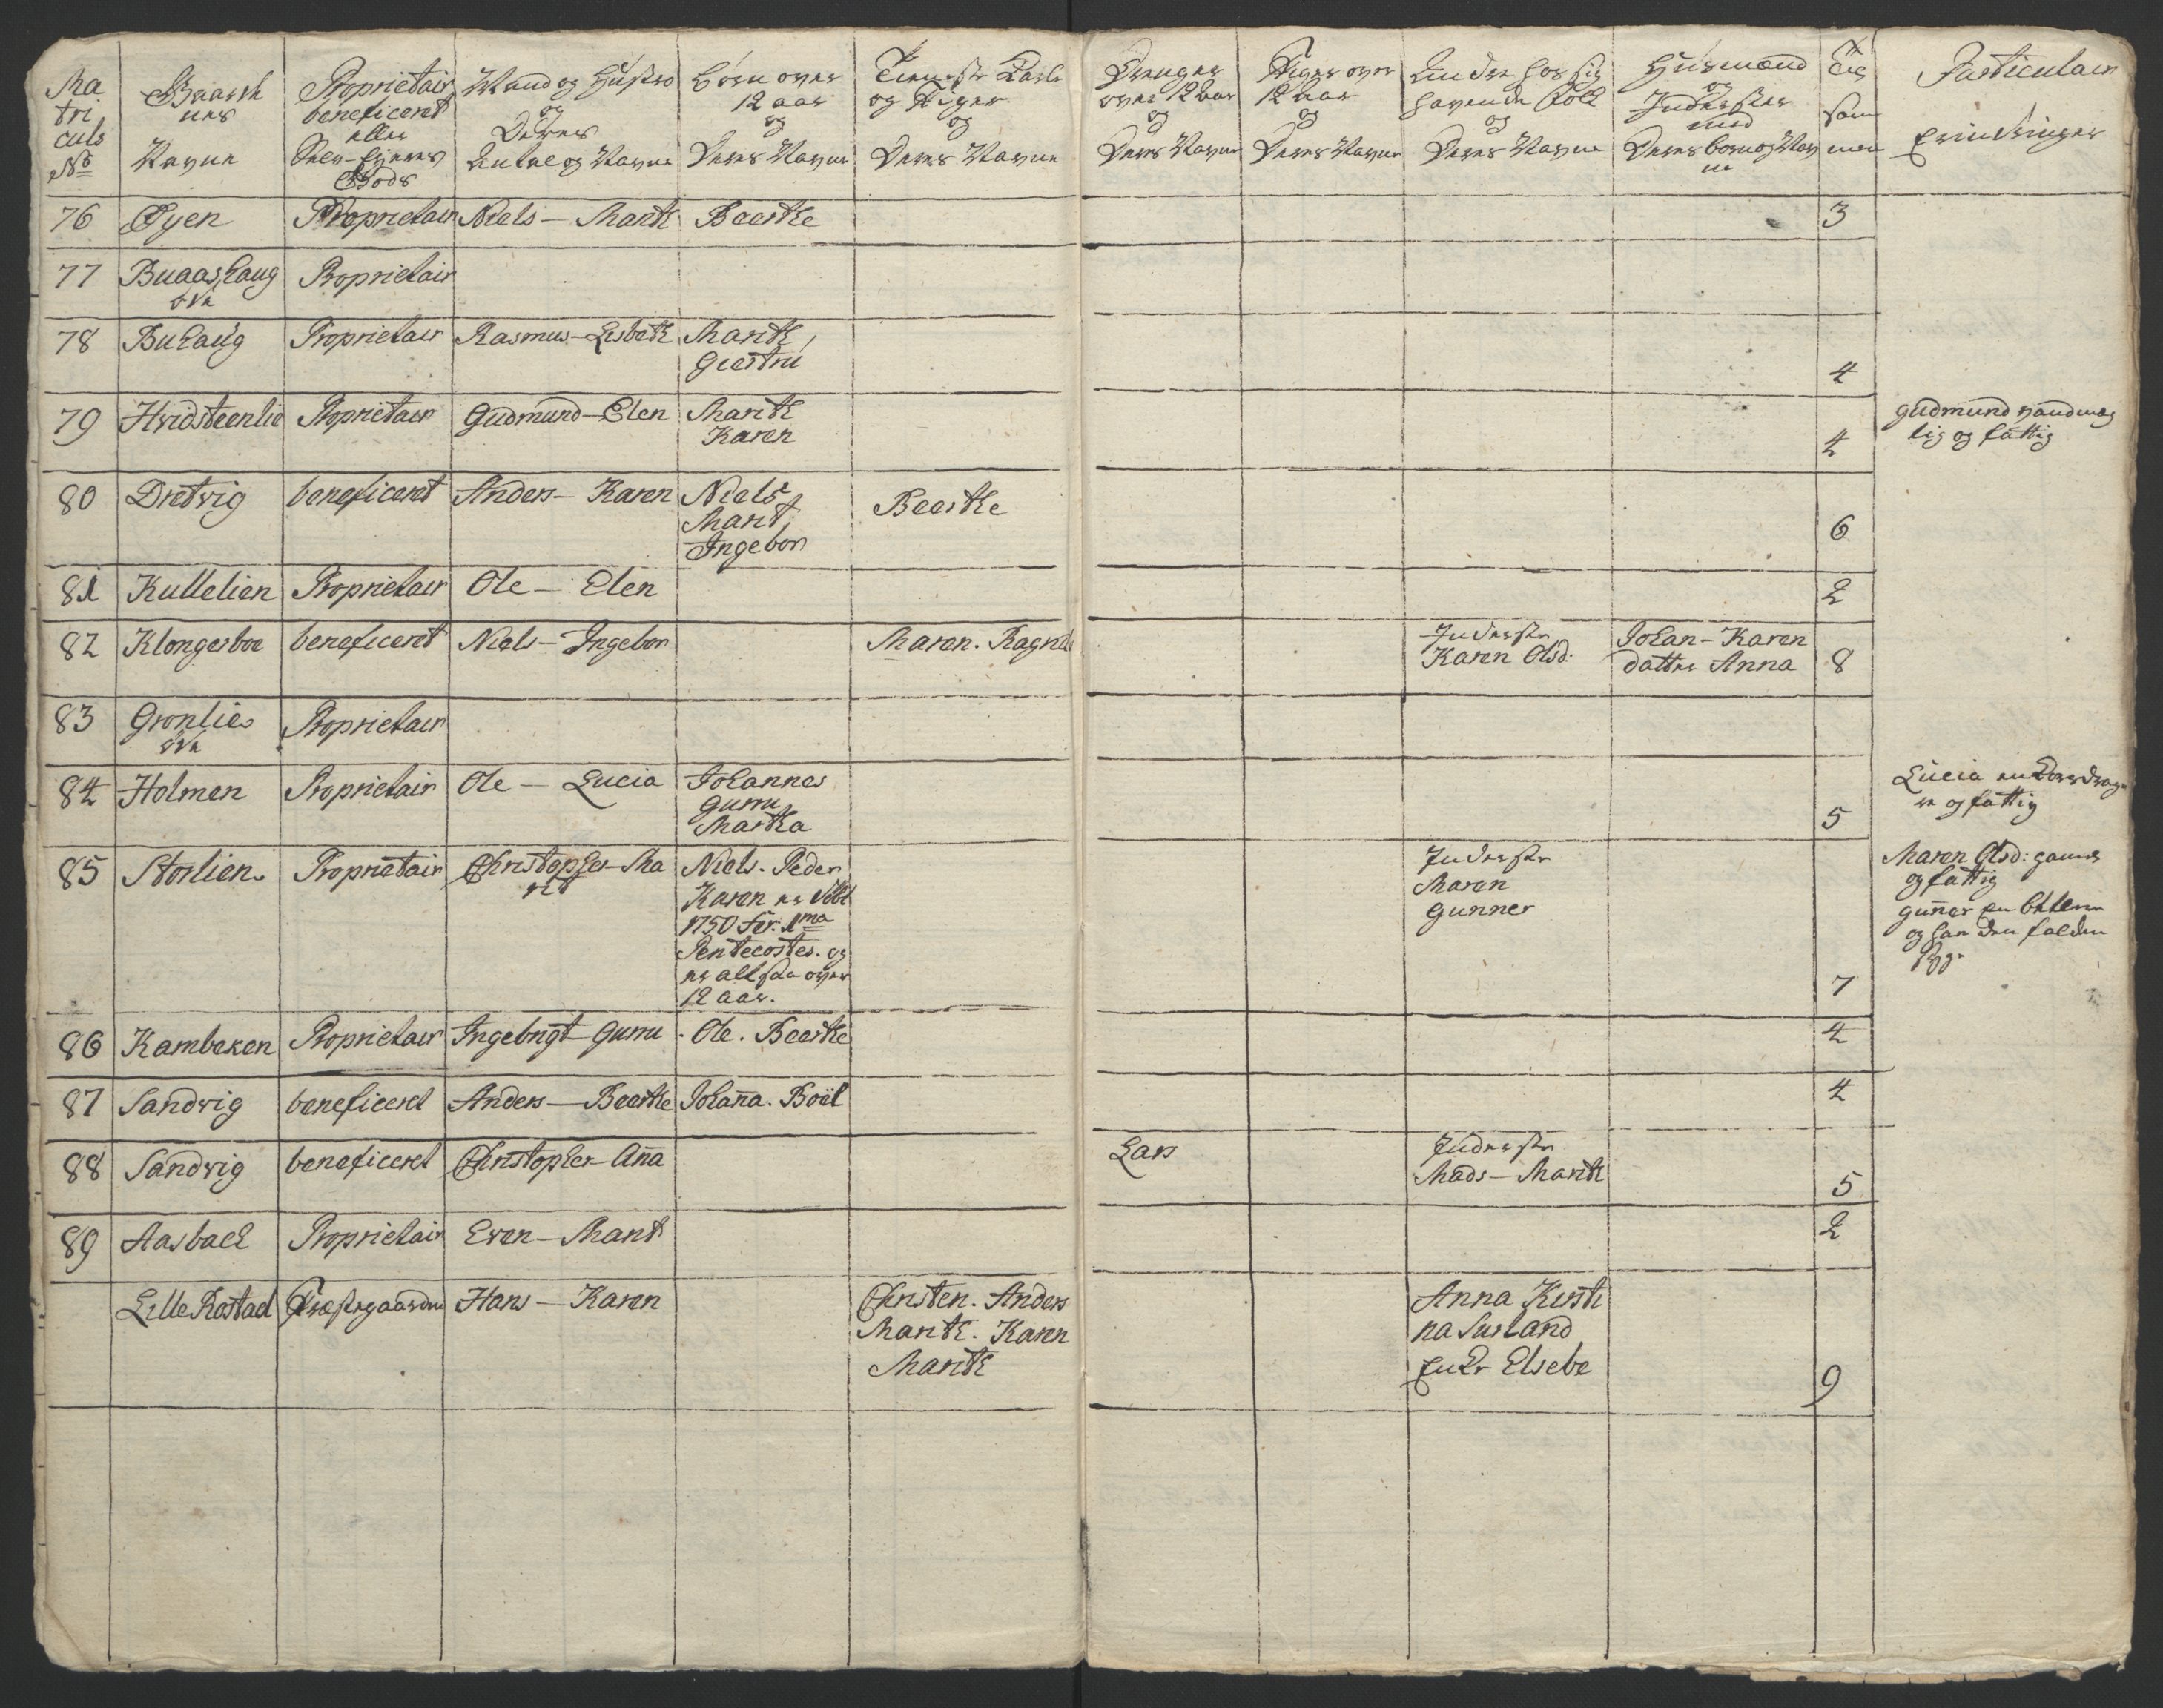 Ma
tri
culs
No
Gaarde
nes
Navne
Proprietair
beneficeret
eller
Selv-Ejeres
Gods
Mand og Hustro
og
Deres
Antal og Navne
Børn over
12 aar
og
Deres Navne
Tieneste Karle
og Piger
og
Deres Navne
Drenge
over 12 aar
og
Deres Navne
Piger over
12 aar
og
Deres Navne
Andre hos sig
havende Folk
og
Deres Navne
Huusmænd
og
Inderster
med
Deres børn og Nav
ne
Til
sam
men
Particulair
Erindringer
76 Øyen Proprietair Niels - Marith Beerthe 3
77 Buaashaug Proprietair
øde
78 Buhaug Proprietair Rasmus - Lisbeth Marith,
Giertru 4
79 Hvidsteenlie Proprietair Gudmund - Elen Marith
Karen 4
Gudmund
lig og fattig
80 Dretvig beneficeret Anders - Karen Niels
Marit,
Ingebor
Beerthe 6
81 Kullelien Proprietair Ole - Elen 2
82 Klongerboe beneficeret Niels - Ingebor Maren. Ragnil
Inderste
Karen Olsd:
Johan - Karen
datter Anna 8
83 Grønlie Proprietair
øde
84 Holmen Proprietair Ole - Lucia Johannes
Gurru
Martha 5
Lucia en
og fattig
85 Storlien Proprietair Christopher - Ma
rit
Niels. Peder
Karen er døbt
1750 Fer: 1ma
Pentecostes. og
er altsaa over
12 aar.
Inderste
Maren
Gunner
7
Maren Olsd: gammel
og fattig
Gunner en
og har den faldende
Syge
86 Kambeken Proprietair Ingebrigt - Gurru Ole. Beerthe 4
87 Sandvig beneficeret Anders - Beerthe Johanna. Boël 4
88 Sandvig beneficeret Christopher - Anna Lars
Inderste
Mads - Marith 5
89 Aasbach Proprietair Even - Marit 2
Lille Røstad Præstegaarden Hans - Karen
Christen. Anders
Marith. Karen
Marith
Anna Kirsti
na Surland
Enke Elsebe 9